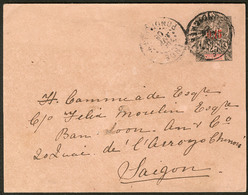 H. Commeáde Esqre
C/o Felix Moulin Esqre
Ban Soon An & Co
20 Quai de l'Arroyo Chinois
Saigon